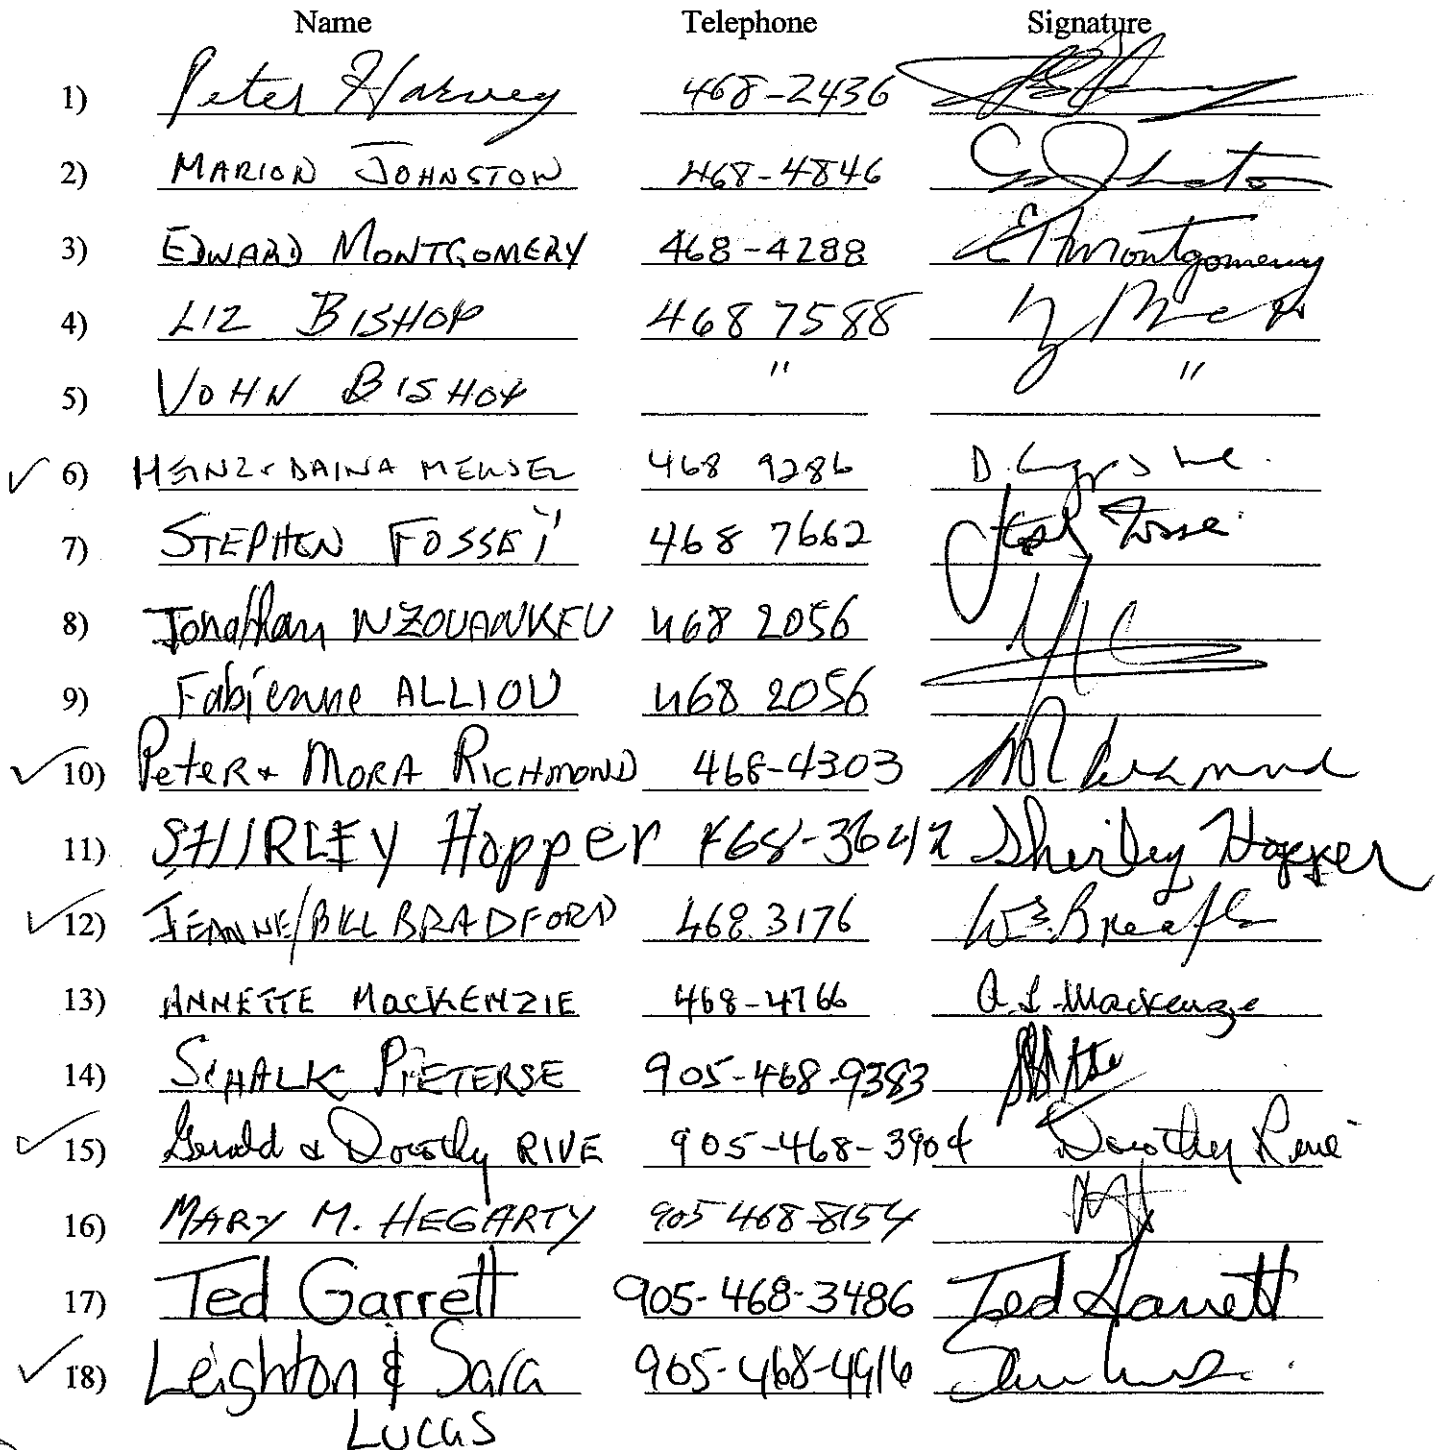 Name Telephone Signature
1) Peter Harvey 468-2436
2) MARION JOHNSTON 468-4846 Johnston
3) EDWARD MONTGOMERY 468-4288 E Montgomery
4) LIZ BISHOP 468 7588
5) JOHN BISHOP " "
✓ 6) HEINZ & DAINA 468 9286 D.
7) STEPHEN FOSSEÏ 468 7662
8) Jonathan NZOUANKEU 468 2056
9) Fabienne ALLIOU 468 2056
✓ 10) PETER & MORA RICHMOND 468-4303 M Richmond
11) SHIRLEY Hopper 468-3642 Shirley Hopper
✓ 12) JEANNE/BILL BRADFORD 468.3176
13) ANNETTE MacKENZIE 468-4766 A.L. Mackenzie
14) SCHALK PIETERSE 905-468-9383
✓ 15) Gerald & Dorothy RIVE 905-468-3904 Dorothy Rive
16) MARY M. HEGARTY 905 468-8154
17) Ted Garrett 905-468-3486 Ted Garrett
✓ 18) Leighton & Sara 905-468-4916
LUCAS